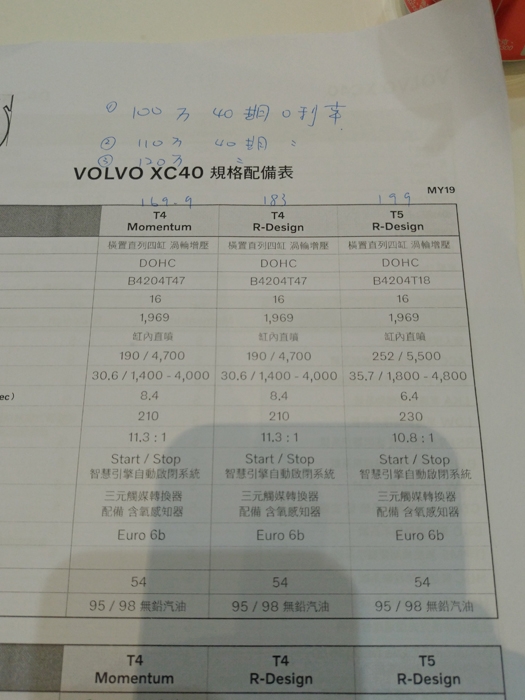 ① 100万 40期 0利率
② 110万 40期 〃
③ 120万 〃
VOLVO XC40 規格配備表
MY19
169.9 183 199
T4 T4 T5
Momentum R-Design R-Design
橫置直列四缸 渦輪增壓 橫置直列四缸 渦輪增壓 橫置直列四缸 渦輪增壓
DOHC DOHC DOHC
B4204T47 B4204T47 B4204T18
16 16 16
1,969 1,969 1,969
缸內直噴 缸內直噴 缸內直噴
190 / 4,700 190 / 4,700 252 / 5,500
30.6 / 1,400 - 4,000 30.6 / 1,400 - 4,000 35.7 / 1,800 - 4,800
ec) 8.4 8.4 6.4
210 210 230
11.3 : 1 11.3 : 1 10.8 : 1
Start / Stop Start / Stop Start / Stop
智慧引擎自動啟閉系統 智慧引擎自動啟閉系統 智慧引擎自動啟閉系統
三元觸媒轉換器 三元觸媒轉換器 三元觸媒轉換器
配備 含氧感知器 配備 含氧感知器 配備 含氧感知器
Euro 6b Euro 6b Euro 6b
54 54 54
95 / 98 無鉛汽油 95 / 98 無鉛汽油 95 / 98 無鉛汽油
T4 T4 T5
Momentum R-Design R-Design